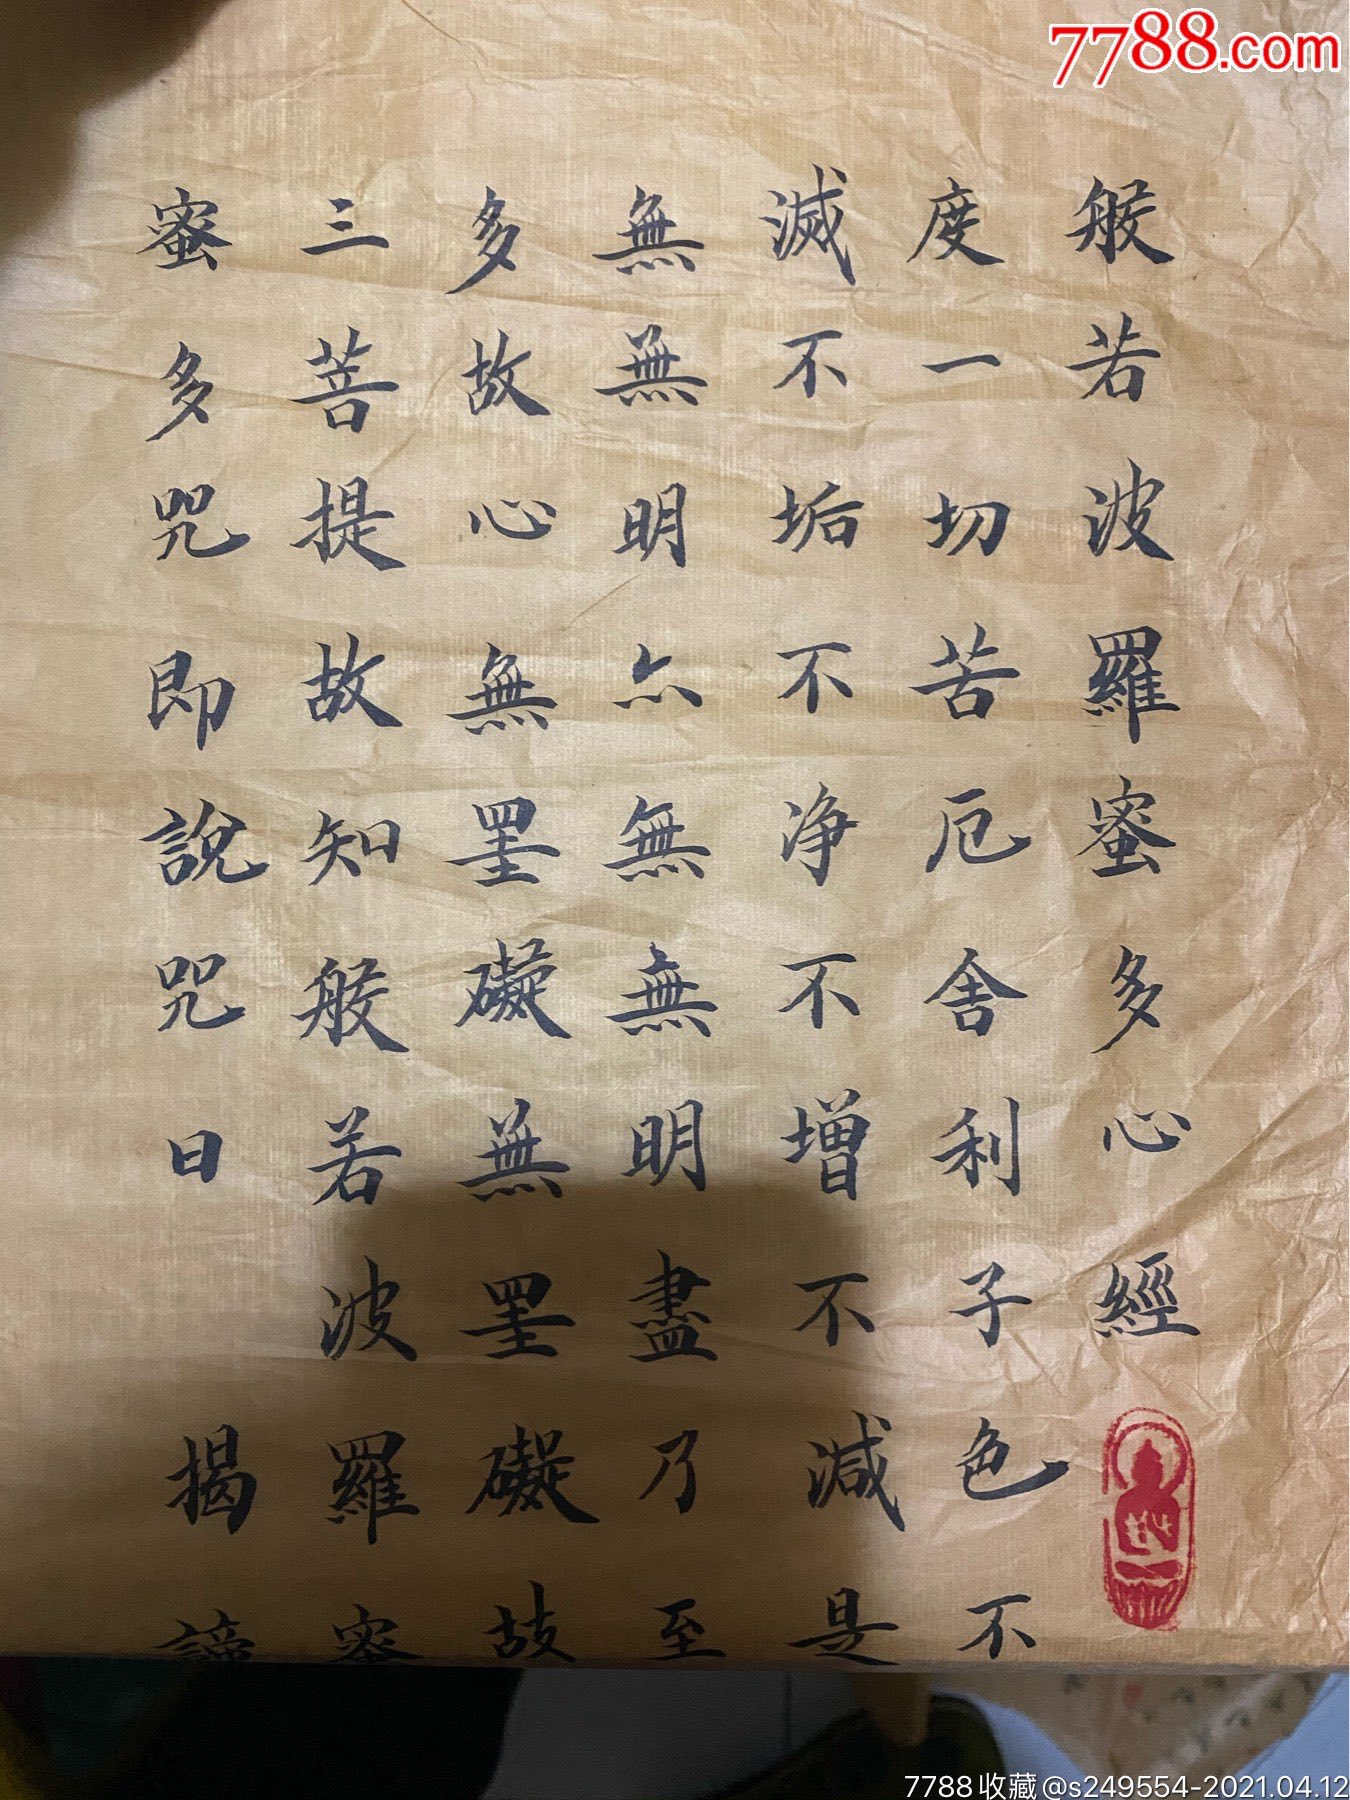 7788.com
般若波羅蜜多心經
度一切苦厄舍利子色不
滅不垢不净不增不減是
無無明亦無無明盡乃至
多故心無罣礙無罣礙故
三菩提故知般若波羅蜜
蜜多咒即說咒曰揭諦
7788收藏@s249554-2021.04.12